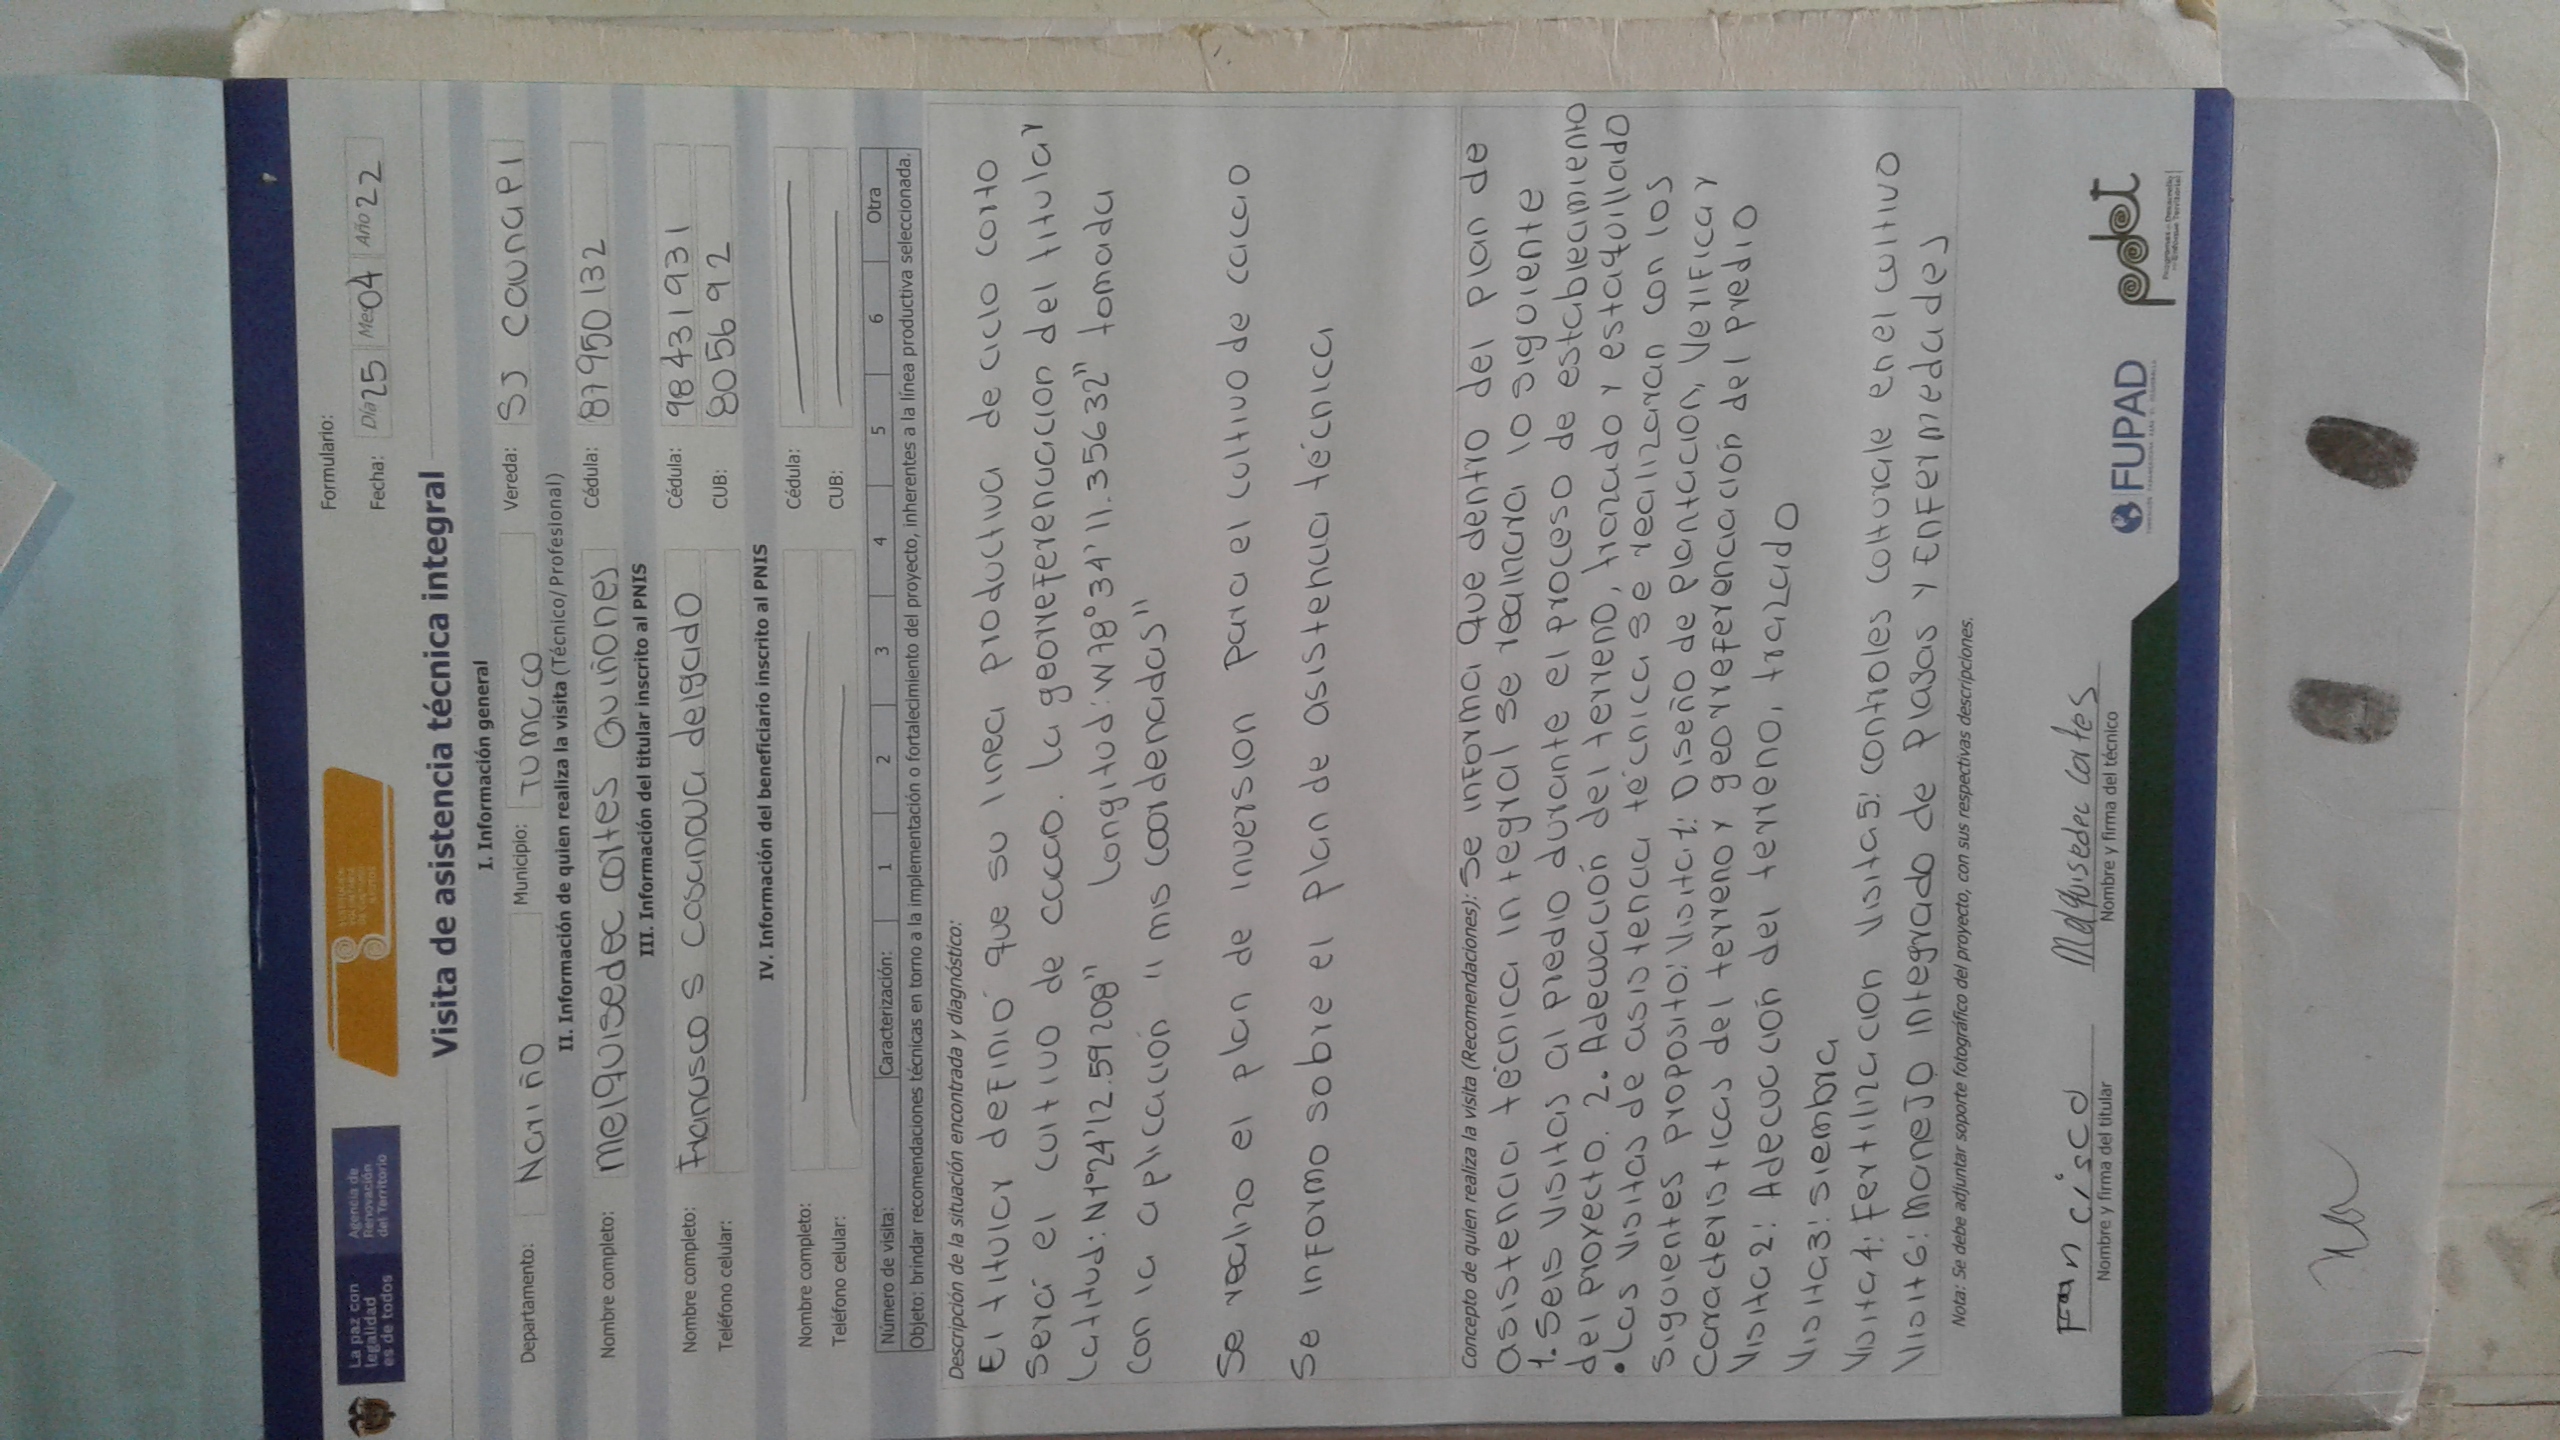 La paz con
legalidad
es de todos
Agencia de
Renovación
del Territorio
Formulario:
Fecha: Día 25 Mes 04 Año 22
Visita de asistencia técnica integral
I. Información general
Departamento: Nariño Municipio: TUMACO Vereda: SJ caunapi
II. Información de quien realiza la visita (Técnico/ Profesional)
Nombre completo: melquisedec cortes Quiñones Cédula: 87950132
III. Información del titular inscrito al PNIS
Nombre completo: Francisco S casanova delgado Cédula: 98431931
Teléfono celular: CUB: 8056 92
IV. Información del beneficiario inscrito al PNIS
Nombre completo: Cédula:
Teléfono celular: CUB:
Número de visita: Caracterización: 1 2 3 4 5 6 Otra
Objeto: brindar recomendaciones técnicas en torno a la implementación o fortalecimiento del proyecto, inherentes a la línea productiva seleccionada.
Descripción de la situación encontrada y diagnóstico:
El titular definió que su linea productiva de ciclo corto
será el cultivo de cacao. la georreferenciacion del titular
Latitud: N1°24'12.59208" Longitud: W78°34'11.35632" tomada
con la aplicación "mis coordenadas"
Se realizo el plan de inversion para el cultivo de cacao
Se informo sobre el plan de asistencia técnica
Concepto de quien realiza la visita (Recomendaciones): Se informa que dentro del plan de
asistencia técnica integral se realizara lo siguiente
1. Seis visitas al predio durante el proceso de establecimiento
del proyecto. 2. Adecuación del terreno, trazado y estaquillado
• Las visitas de asistencia técnica se realizaran con los
siguientes proposito: Visita 1: Diseño de plantacion, verificar
caracteristicas del terreno y georreferenciación del predio
Visita 2: Adecuación del terreno, trazado
Visita 3: Siembra
Visita 4: Fertilizacion Visita 5: controles colturale en el cultivo
Visit 6: manejo integrado de plagas y enfermedades
Nota: Se debe adjuntar soporte fotográfico del proyecto, con sus respectivas descripciones.
Fran cisco
Nombre y firma del titular
Melquisedec Cortes
Nombre y firma del técnico
FUPAD
pdet